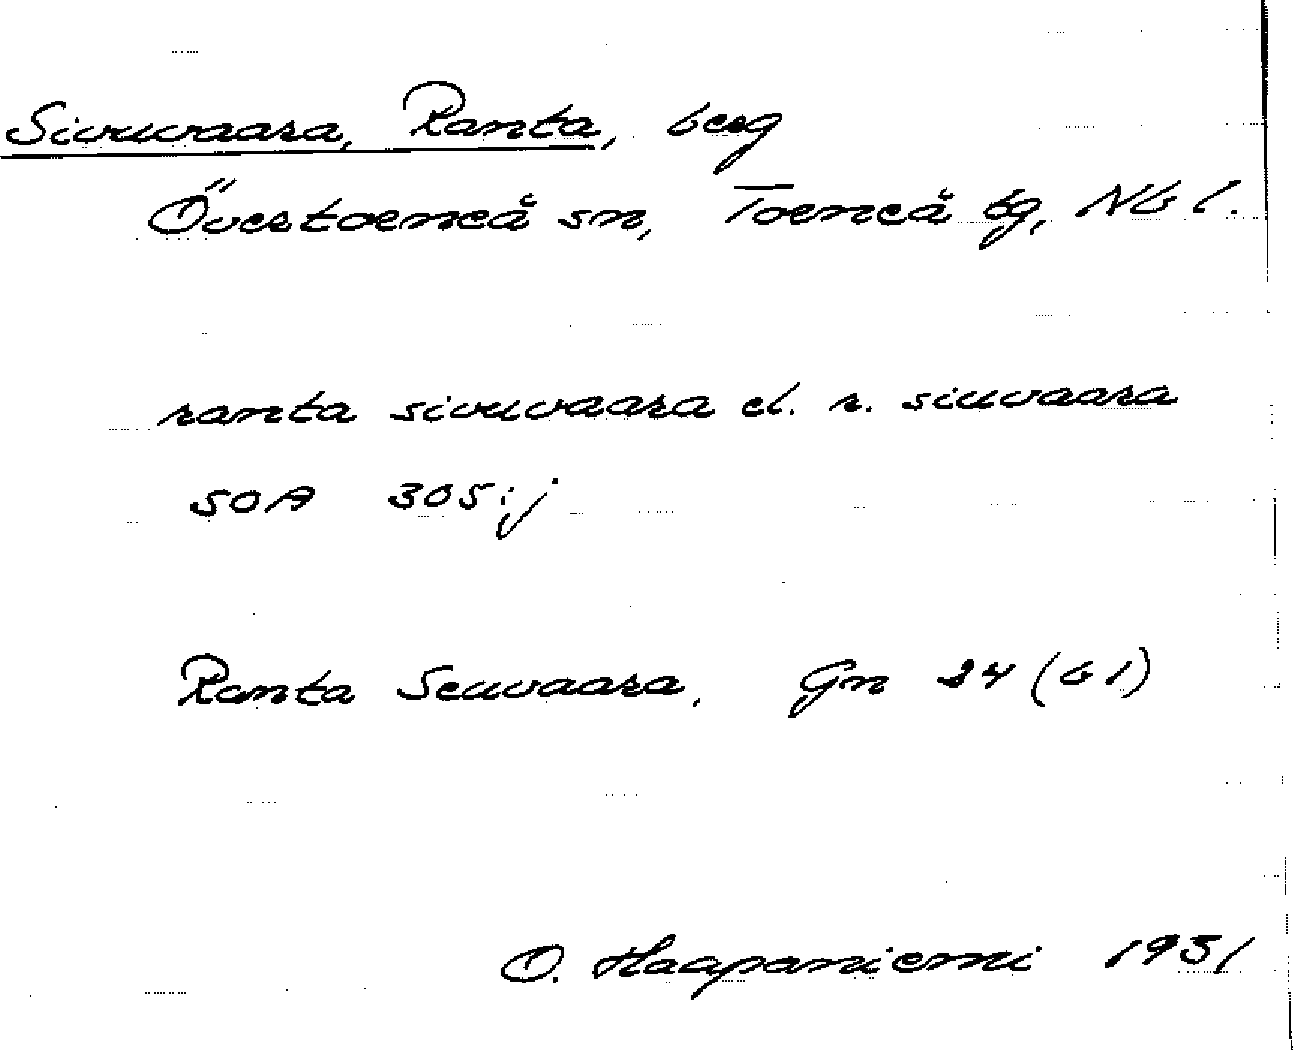 Sivuvaara, Ranta, berg
Övertorneå sn, Torneå tg, Nb l.
ranta sivuvaara el. r. siuvaara
SOA 305:j
Ranta Seuvaara, Gn 24 (b1)
O. Haapaniemi 1931